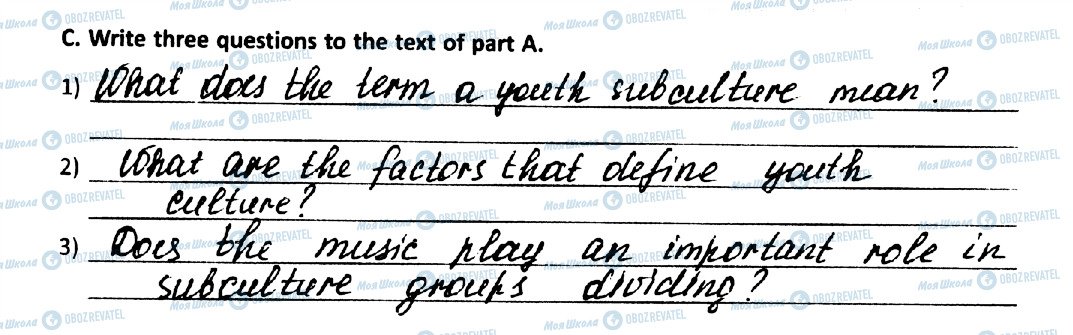 C. Write three questions to the text of part A.
1) What does the term a youth subculture mean?
2) What are the factors that define youth
culture?
3) Does the music play an important role in
subculture groups dividing?
Моя Школа OBOZREVATEL